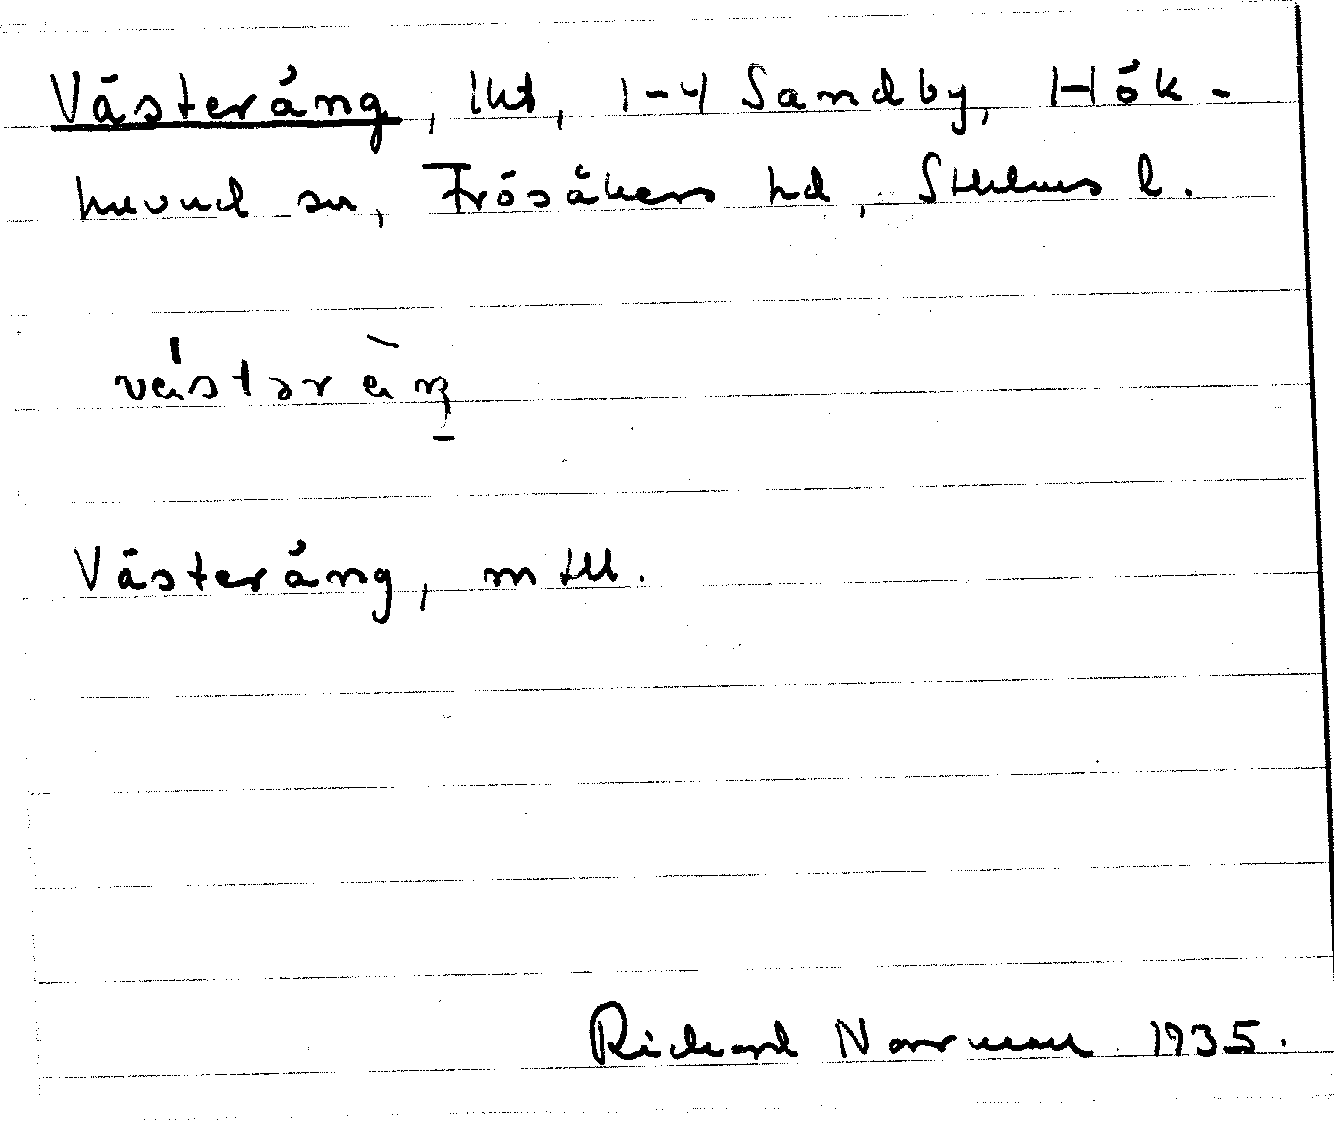 Västeräng, lht, 1-4 Sandby, Hök-
huvud sn, Frösåkers hd, Sthlms l.
västəräŋ
Västeräng, mtll.
Richard Norrman 1935.